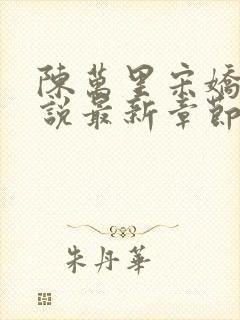 陳萬里宋嬌
說最新章節
朱丹華